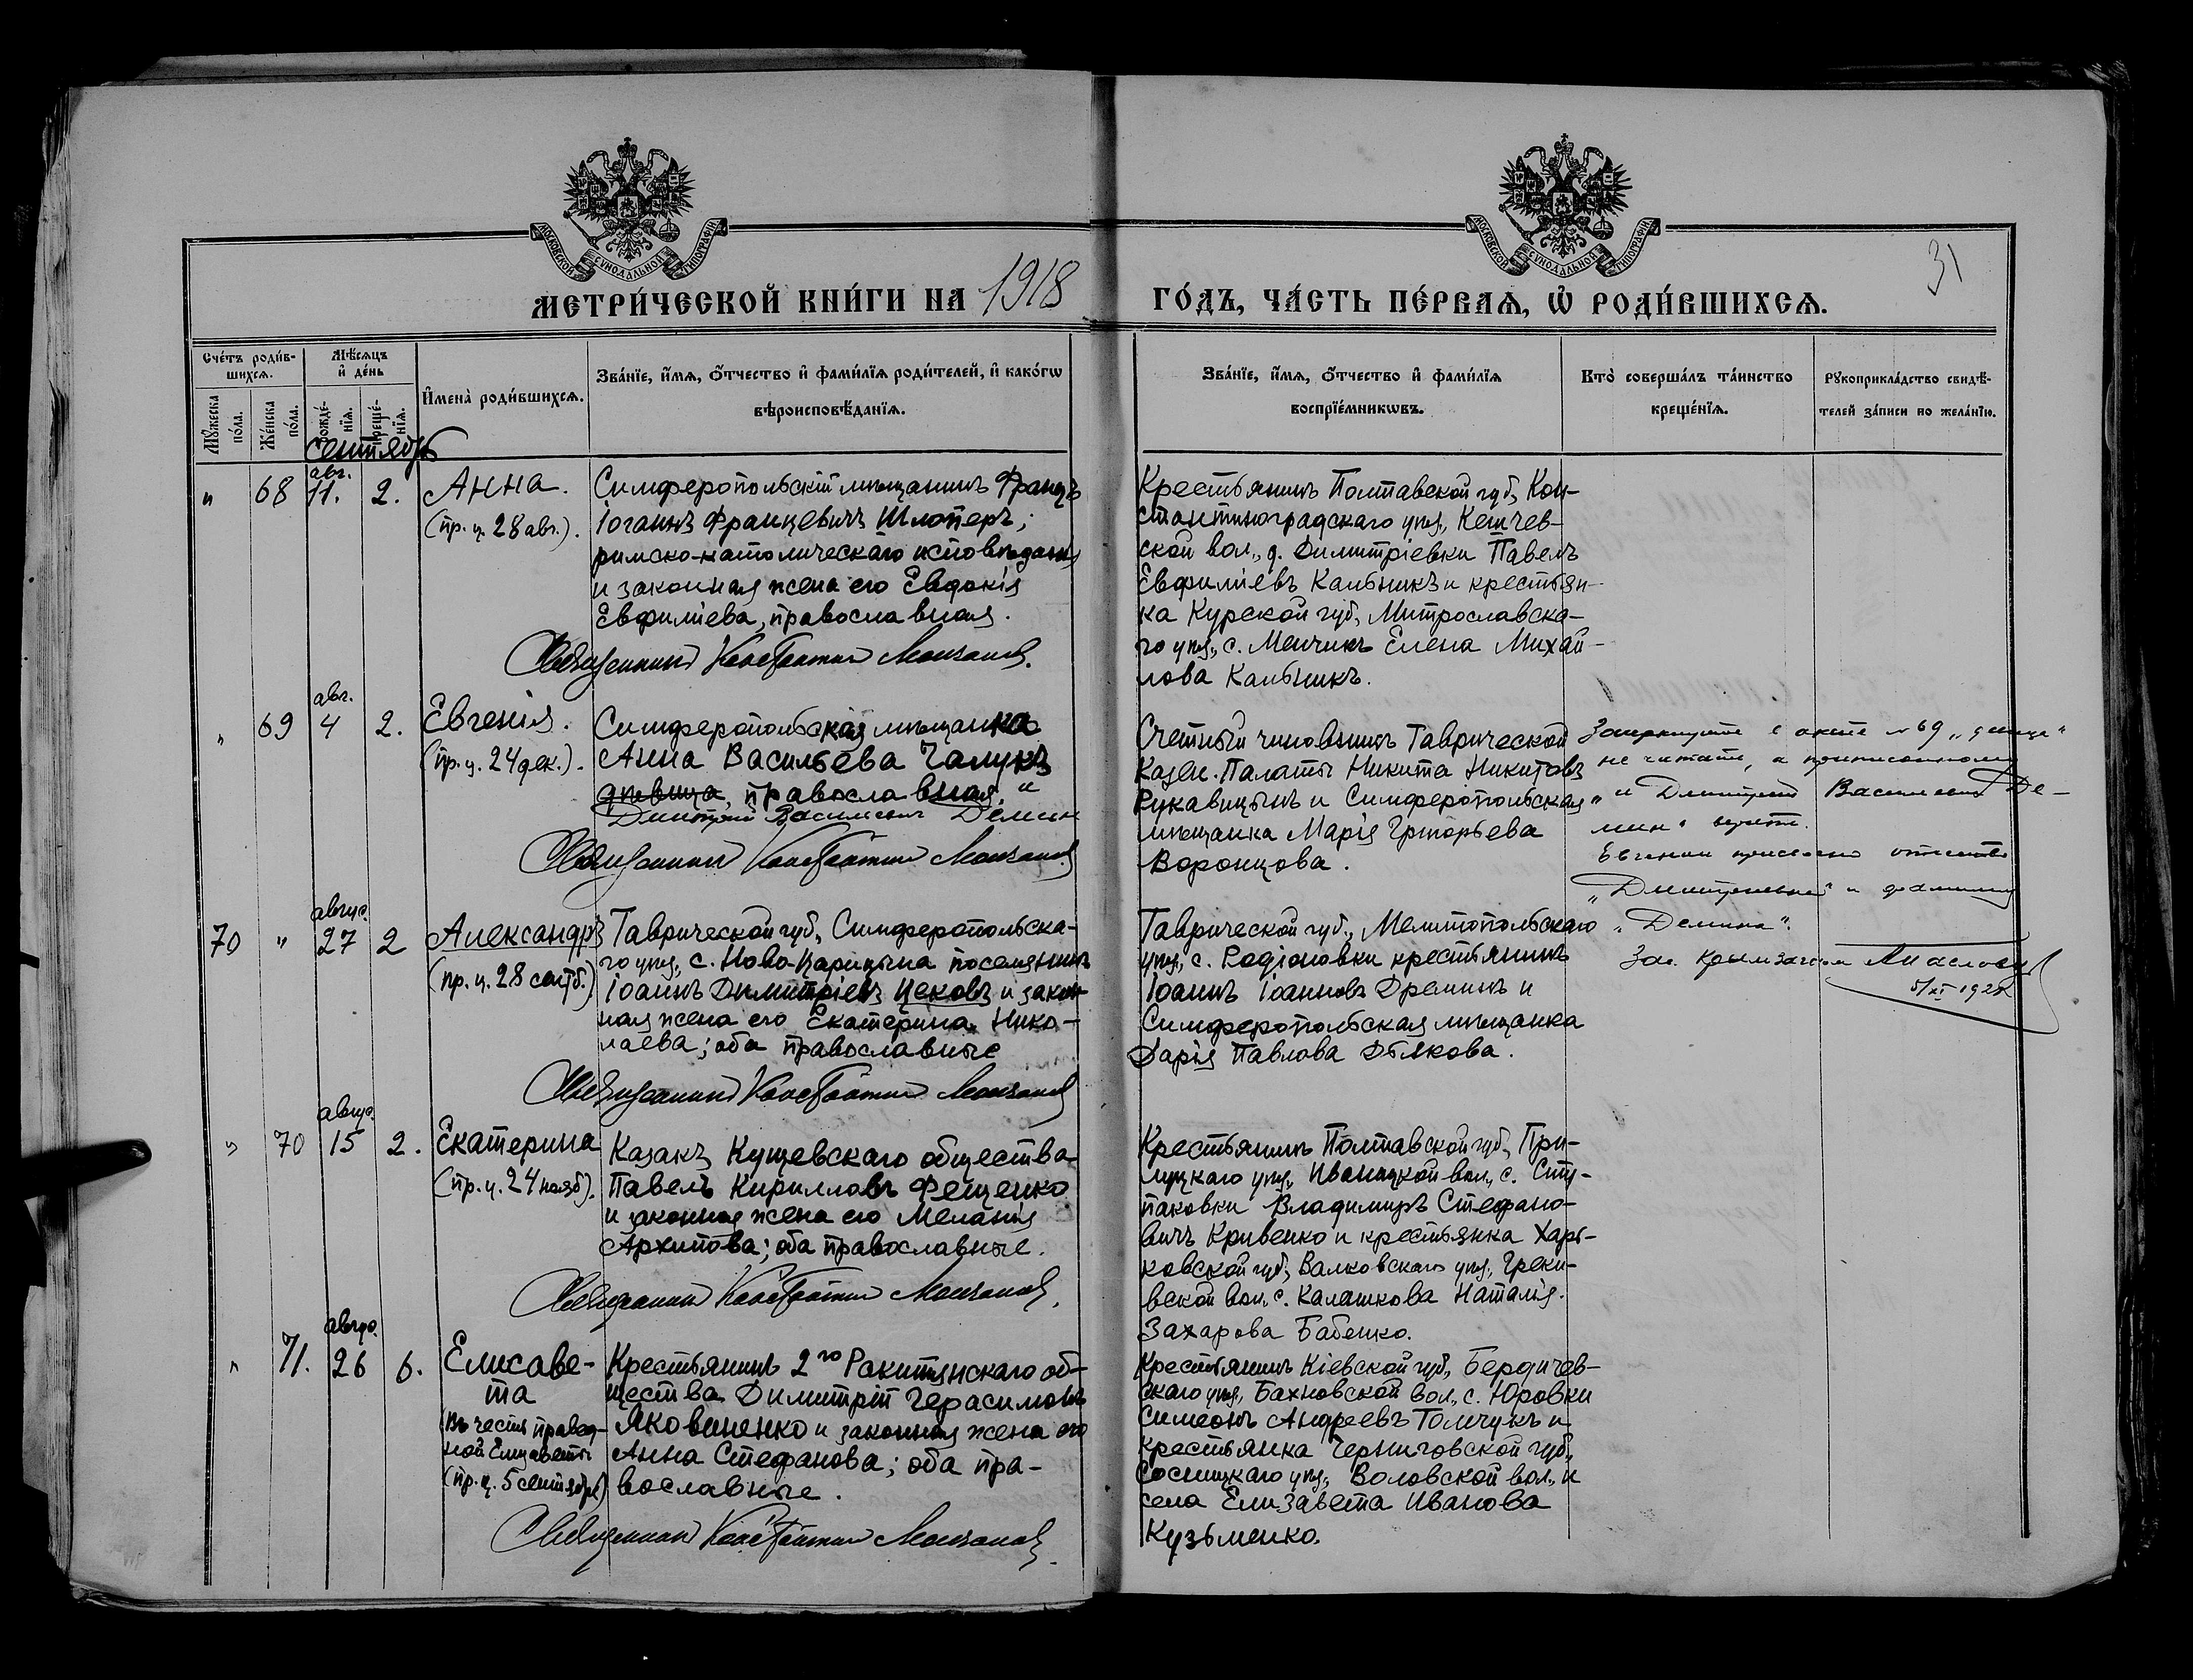 МОСКОВСКОЙ СѴНОДАЛЬНОЙ ТИПОГРАФІИ
МОСКОВСКОЙ СѴНОДАЛЬНОЙ ТИПОГРАФІИ
31
МЕТРИ́ЧЕСКОЙ КНИ́ГИ НА 1918 ГО́ДЪ, ЧА́СТЬ ПЕ́РВАѦ, Ѡ҆ РОДИ́ВШИХСѦ.
Сче́тъ роди́в-
шихсѧ.
Мѣ́сѧцъ
и҆ де́нь
Мꙋ́жеска
по́ла.
Же́нска
по́ла.
рожде́-
нїѧ.
креще́-
нїѧ.
И҆мена̀ роди́вшихсѧ.
Зва́нїе, и҆́мѧ, ѻ҆́тчество и҆ фами́лїѧ роди́телей, и҆ како́гѡ
вѣроисповѣ́данїѧ.
Зва́нїе, и҆́мѧ, ѻ҆́тчество и҆ фами́лїѧ
воспрїе́мникѡвъ.
Кто̀ соверша́лъ та́инство
креще́нїѧ.
Рꙋкоприкла́дство свидѣ́-
телей за́писи по жела́нїю.
сентябрь
" 68 авг. 11. 2.
Анна.
(пр. ц. 28 авг.).
Симферопольскій мѣщанинъ Францъ
Іоганнъ Францевичъ Шлоперъ;
римско-католическаго исповѣданія
и законная жена его Евдокія
Евфиміева, православная.
Священникъ Константинъ
Крестьянинъ Полтавской губ., Кон-
стантиноградскаго уѣз.,
ской вол., д. Димитріевки Павелъ
Евфиміевъ Калѣникъ и крестьян-
ка Курской губ.,
го уѣз., с. Елена Михай-
лова Калѣникъ.
" 69 авг. 4 2.
Евгенія.
(пр. ц. 24 дек.).
Симферопольская мѣщанка
Анна Васильева Чалукъ
дѣвица, православная, "и
Дмитрий Васильевич Демин
Священникъ Константинъ
Счетный чиновникъ Таврической
Казен. Палаты Никита Никитовъ
Рукавицынъ и Симферопольская
мѣщанка Марія Григорьева
Воронцова.
Зачеркнутое в акте № 69 „девица"
не читать, а приписанному
„и Дмитрий Васильевич Де-
мин" верить.
Евгении присвоено отчество
„Дмитриевна" и фамилия
„Демина".
Зав. Крымзагсом Маслов
5/XI 192
70 " август. 27 2
Александръ
(пр. ц. 28 сентб.)
Таврической губ., Симферопольска-
го уѣз., с. Ново-Царицына поселянинъ
Іоаннъ Димитріевъ Цековъ и закон-
ная жена его Екатерина Нико-
лаева; оба православные
Священникъ Константинъ
Таврической губ., Мелитопольскаго
уѣз., с. Родіоновки крестьянинъ
Іоаннъ Іоанновъ Дреминъ и
Симферопольская мѣщанка
Дарія Павлова Дьякова.
" 70 август. 15 2.
Екатерина
(пр. ц. 24 нояб).
Казакъ Кущевскаго общества
Павелъ Кирилловъ Фещенко
и законная жена его Меланія
Архипова; оба православные.
Священникъ Константинъ
Крестьянинъ Полтавской губ., При-
луцкаго уѣз., Иваницкой вол., с. Сту-
паковки Владимиръ Стефано-
вичъ Кривенко и крестьянка Харь-
ковской губ., Валковскаго уѣз.,
вской вол., с. Калашкова Наталія
Захарова Бабенко.
" 71. август. 26 6.
Елисаве-
та
(въ честь правед-
ной Елизаветы
(пр. ц. 5 сентября)
Крестьянинъ 2го Ракитянскаго об-
щества Димитрій Герасимовъ
Яковиненко и законная жена его
Анна Стефанова; оба пра-
вославные.
Священникъ Константинъ
Крестьянинъ Кіевской губ., Бердичев-
скаго уѣз., Бахновской вол., с. Юровки
Симеонъ Андреевъ Толчукъ и
крестьянка Черниговской губ.,
Сосницкаго уѣз., Воловской вол., и
села Елизавета Иванова
Кузьменко.